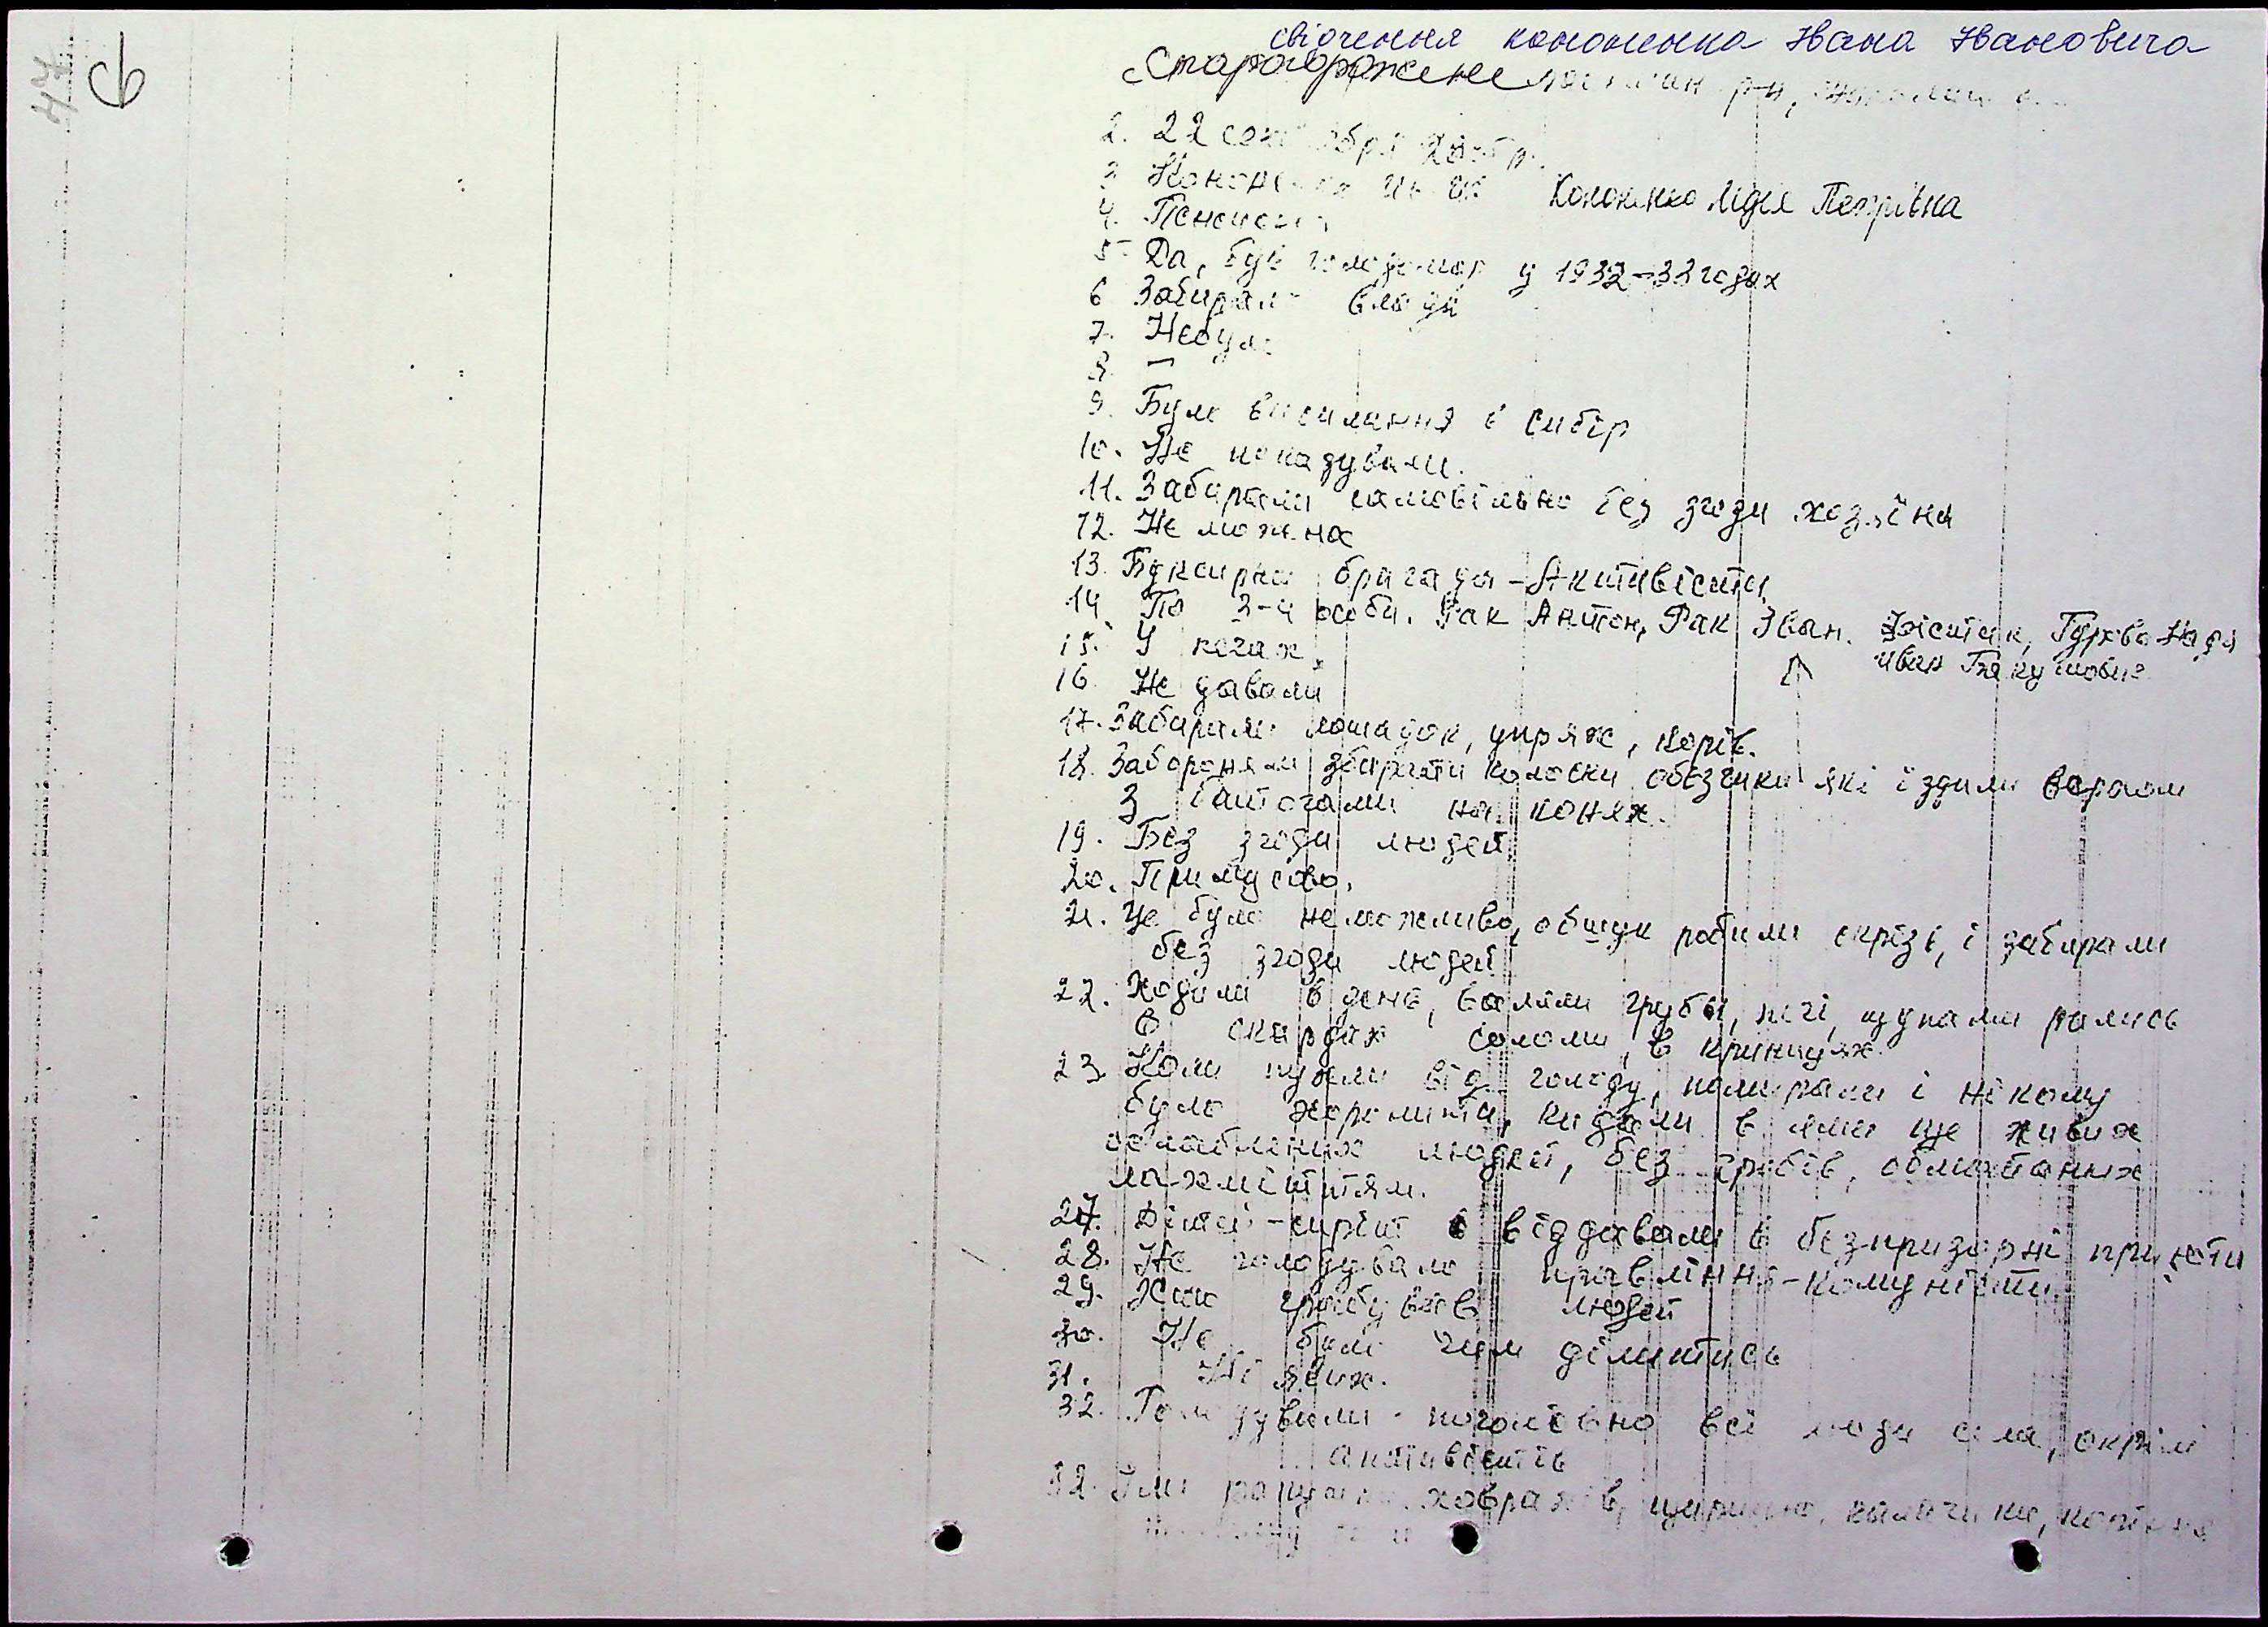 47
свідчення Кононенка Івана Івановича
с Старогорожене р-н,
2. 22
3 Кононенко Кононенко Лідія Петрівна
4. Пенсионер
5 Да, був голодомор у 1932-33 годах
6 Забирали
7. Небуло
8. –
9. Були висилання в Сибір
10. Не нападували.
11. Забирали самовільно без згоди хозяїна
12. Не можна
13. Буксирна бригада – Активісти
14 По 3-4 особи. Рак Антон, Рак Іван. Гурова Надя
Иван
15. У
16. Не давали
17. Забирали лошадок, упряж, корів.
18. Забороняли збирати колоски обєзчики які їздили верхом
з батогами на конях.
19. Без згоди людей.
20. Примусово.
21. Це було неможливо, обшук робили скрізь, і забирали
без згоди людей
22. Ходили в день, валяли груби, печі, щупами рались
в скирдах соломи, в криницях.
23. Коли пухли від голоду, помирали і нікому
було хоронити, кидали в ями ще живих
ослаблених людей, без гробів, обмотаних
ла-хміттям.
27. Дітей-сиріт віддавали в безпризорні приюти
28. Не голодувало правління-комуністи.
29. Хто грабував людей
30. Не було чим ділитись
31. Ні яких.
32. Голодували поголовно всі люди села, окрім
активістів
32. Їли ховрахів,